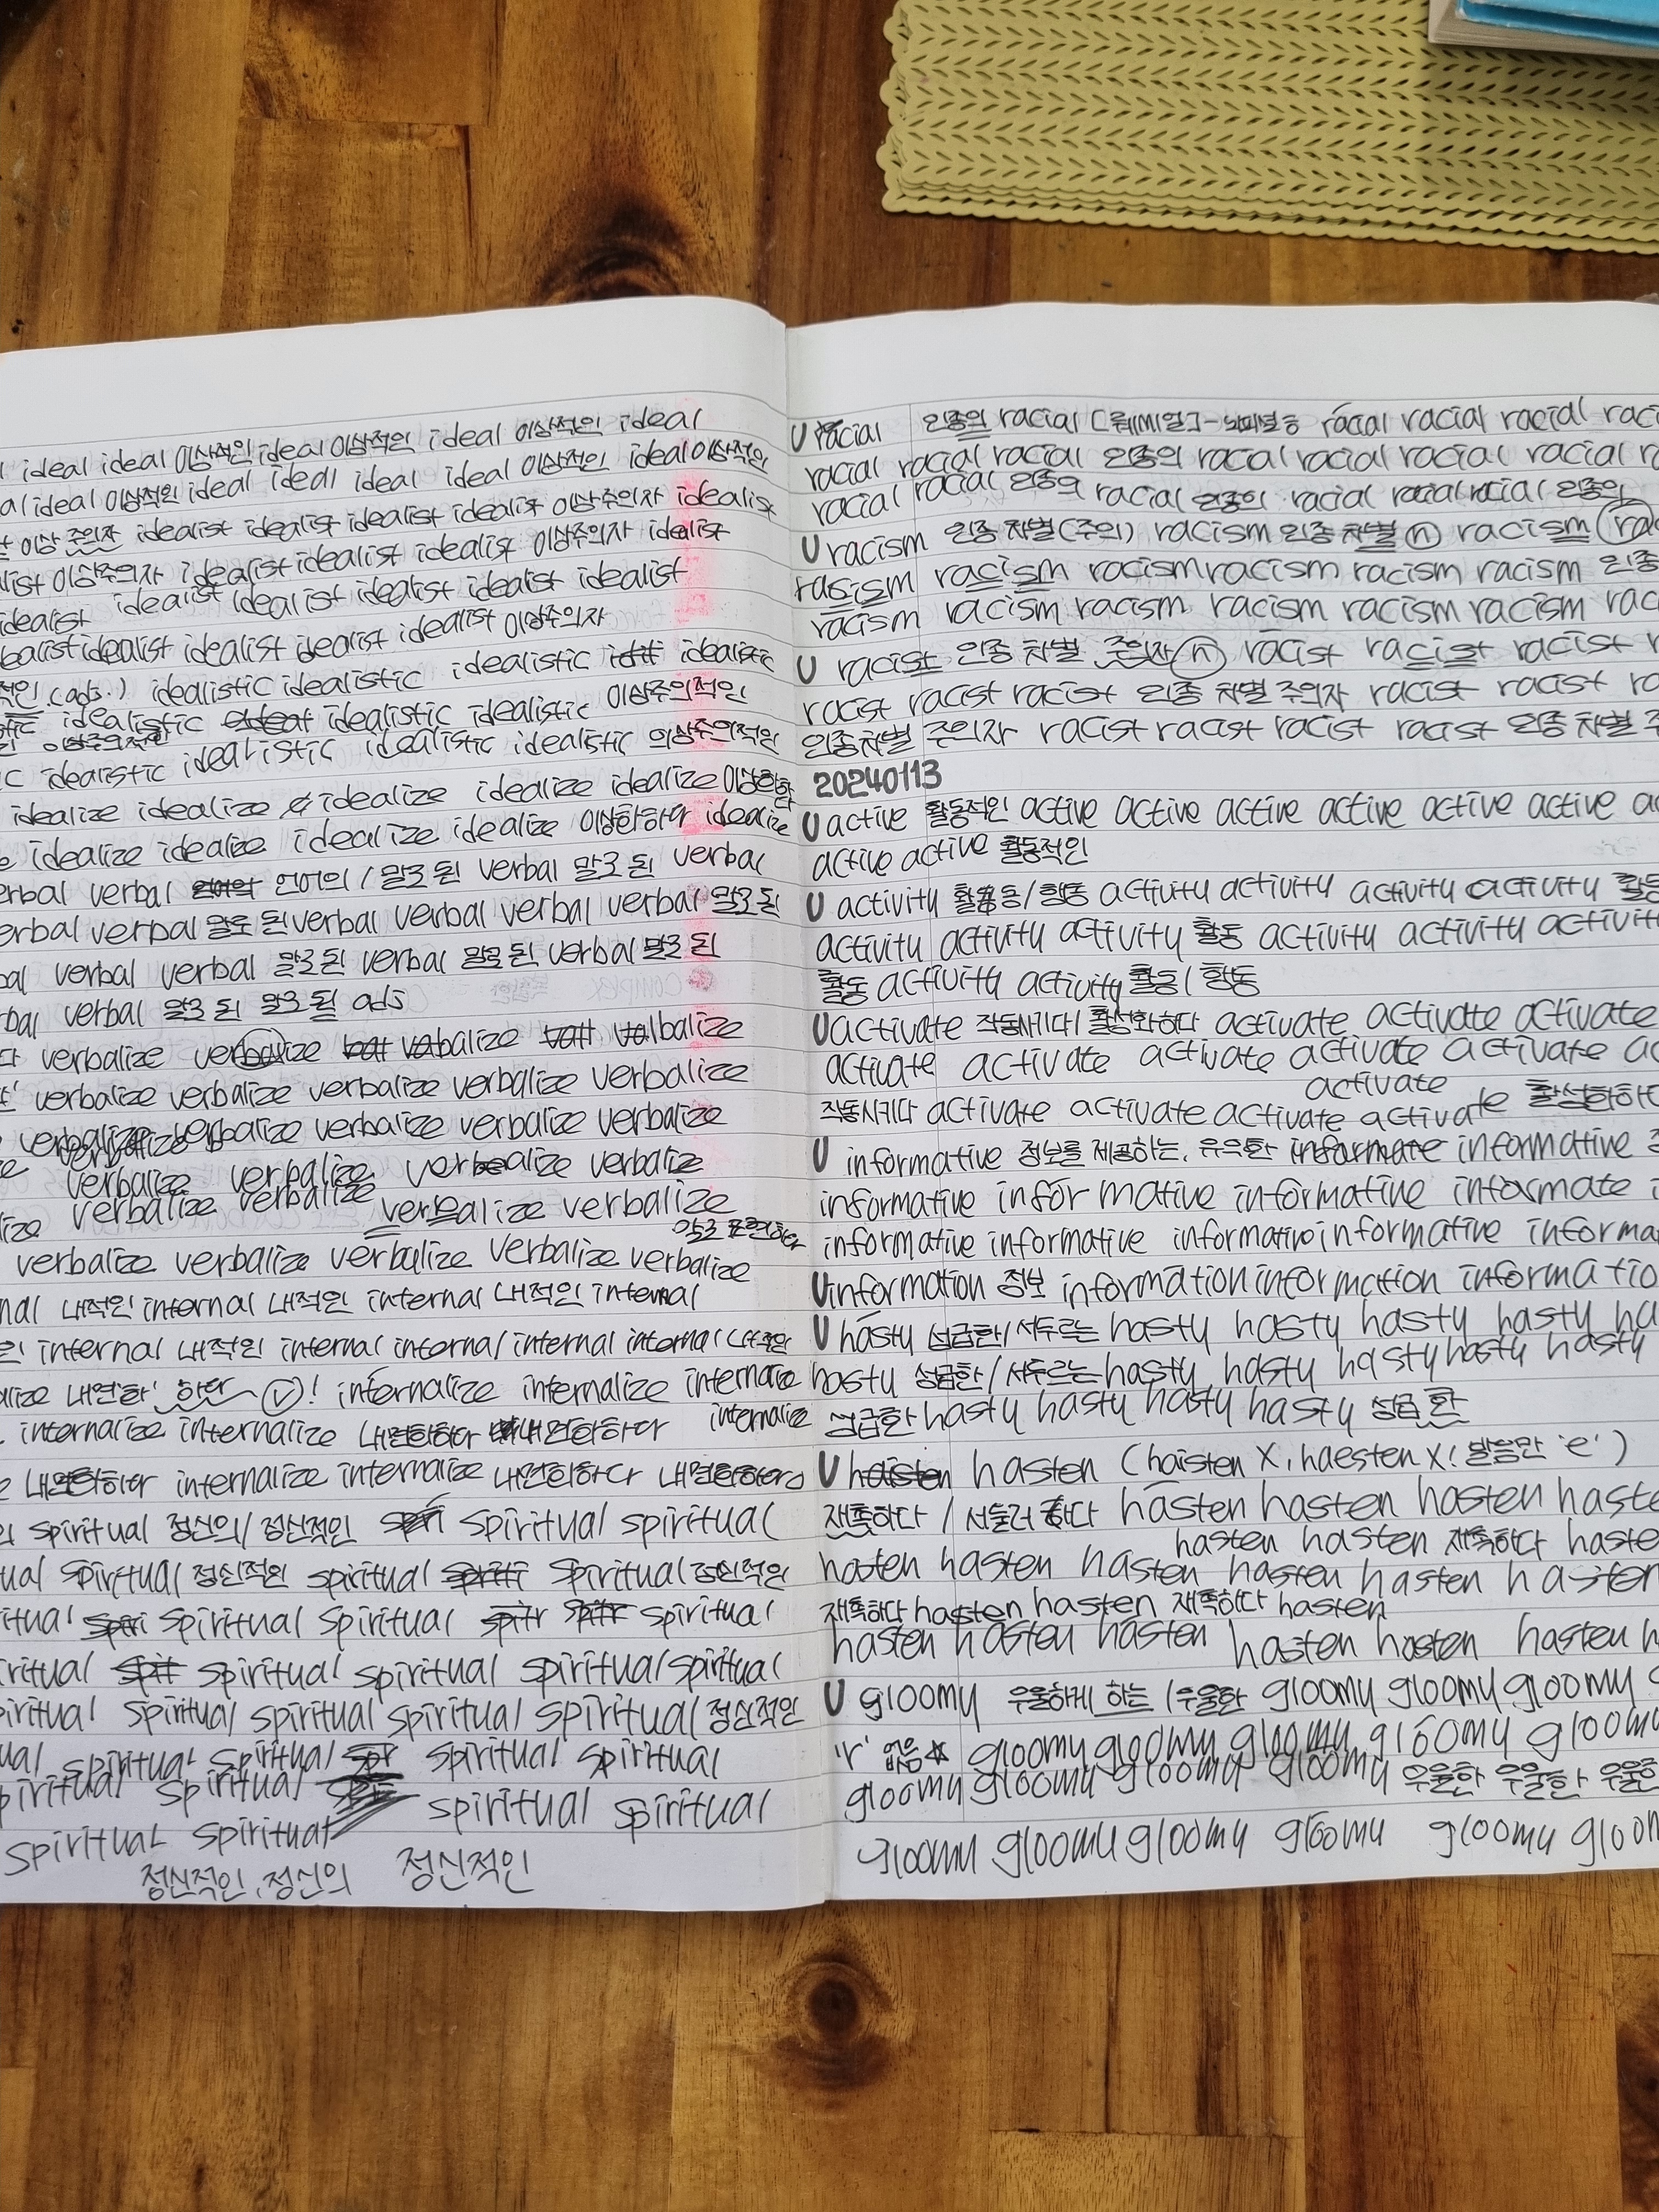 ideal ideal 이상적인 ideal 이상적인 ideal 이상적인 ideal
al ideal 이상적인 ideal ideal ideal ideal 이상적인 ideal 이상적인
이상 주의자 idealist idealist idealist idealist 이상주의자 idealist
list 이상주의자 idealist idealist idealist idealist 이상주의자 idealist
idealist idealist idealist idealist idealist idealist
ealist idealist idealist idealist idealist 이상주의자
적인 (ads.) idealistic idealistic idealistic idealistic
stic idealistic idealistic idealistic 이상주의적인
이상주의적인
ic idealistic idealistic idealistic idealistic 이상주의적인
idealize idealize idealize idealize idealize 이상화하다
e idealize idealize idealize idealize 이상화하다 idealize
erbal verbal 언어의 / 말로 된 verbal 말로 된 verbal
erbal verbal 말로 된 verbal verbal verbal verbal 말로 된
bal verbal verbal 말로 된 verbal 말로 된 verbal 말로 된
rbal verbal 말로 된 말로 된 ads
다 verbalize verbalize vabalize valbalize
verbalize verbalize verbalize verbalize
verbalize verbalize verbalize verbalize verbalize
verbalize
ze verbalize verbalize verbalize verbalize
lize verbalize verbalize verbalize verbalize
말로 표현하다
verbalize verbalize verbalize verbalize verbalize
nal 내적인 internal 내적인 internal 내적인 internal
인 internal 내적인 internal internal internal internal 내적인
alize 내면화' 한다 ⓥ! internalize internalize internalize
internalize internalize 내면화하다 내면화하다 internalize
e 내면화하다 internalize internalize 내면화하다 내면화하다
의 spiritual 정신의/정신적인 spiritual spiritual
ual spiritual 정신적인 spiritual spiritual 정신적인
ritual spiritual spiritual spiritual
iritual spiritual spiritual spiritual spiritual
piritual spiritual spiritual spiritual spiritual 정신적인
ual spiritual spiritual spiritual spiritual
piritual spiritual spiritual spiritual
spiritual spiritual
정신적인, 정신의 정신적인
U racial 인종의 racial racial racial racial raci
racial racial racial 인종의 racal racial racial racial r
racial racial 인종의 racial 인종의 racial racial racial 인종의
U racism 인종 차별(주의) racism 인종 차별 ⓝ racism ra
rasism racism racism racism racism racism 인종
racism racism racism racism racism racism rac
U racist 인종 차별 주의자 ⓝ racist racist racist r
racist racist racist 인종 차별 주의자 racist racist ra
인종차별 주의자 racist racist racist racist 인종 차별 주
20240113
U active 활동적인 active active active active active active a
active active 활동적인
U activity 활동/행동 activity activity activity activity 활동
activity activity activity 활동 activity activity activit
활동 activity activity 활동/행동
U activate 작동시키다/활성화하다 activate activate activate
activate activate activate activate activate ac
activate
작동시키다 activate activate activate activate 활성화하다
U informative 정보를 제공하는, 유익한 informate informative 정
informative informative informative informate i
informative informative informative informative informa
U information 정보 information information informatio
U hasty 성급한/서두르는 hasty hasty hasty hasty ha
hasty 성급한/서두르는 hasty hasty hasty hasty hasty
성급한 hasty hasty hasty hasty 성급한
U haisten hasten (haisten X, haesten X! 발음만 'e')
재촉하다 / 서둘러 하다 hasten hasten hasten haste
hasten hasten 재촉하다 haste
hasten hasten hasten hasten hasten hasten
재촉하다 hasten hasten 재촉하다 hasten
hasten hasten hasten hasten hasten hasten h
U gloomy 우울하게 하는 / 우울한 gloomy gloomy gloomy g
'r' 없음☆ gloomy gloomy gloomy gloomy gloomy
gloomy gloomy gloomy gloomy 우울한 우울한 우울한
gloomy gloomy gloomy gloomy gloomy gloom